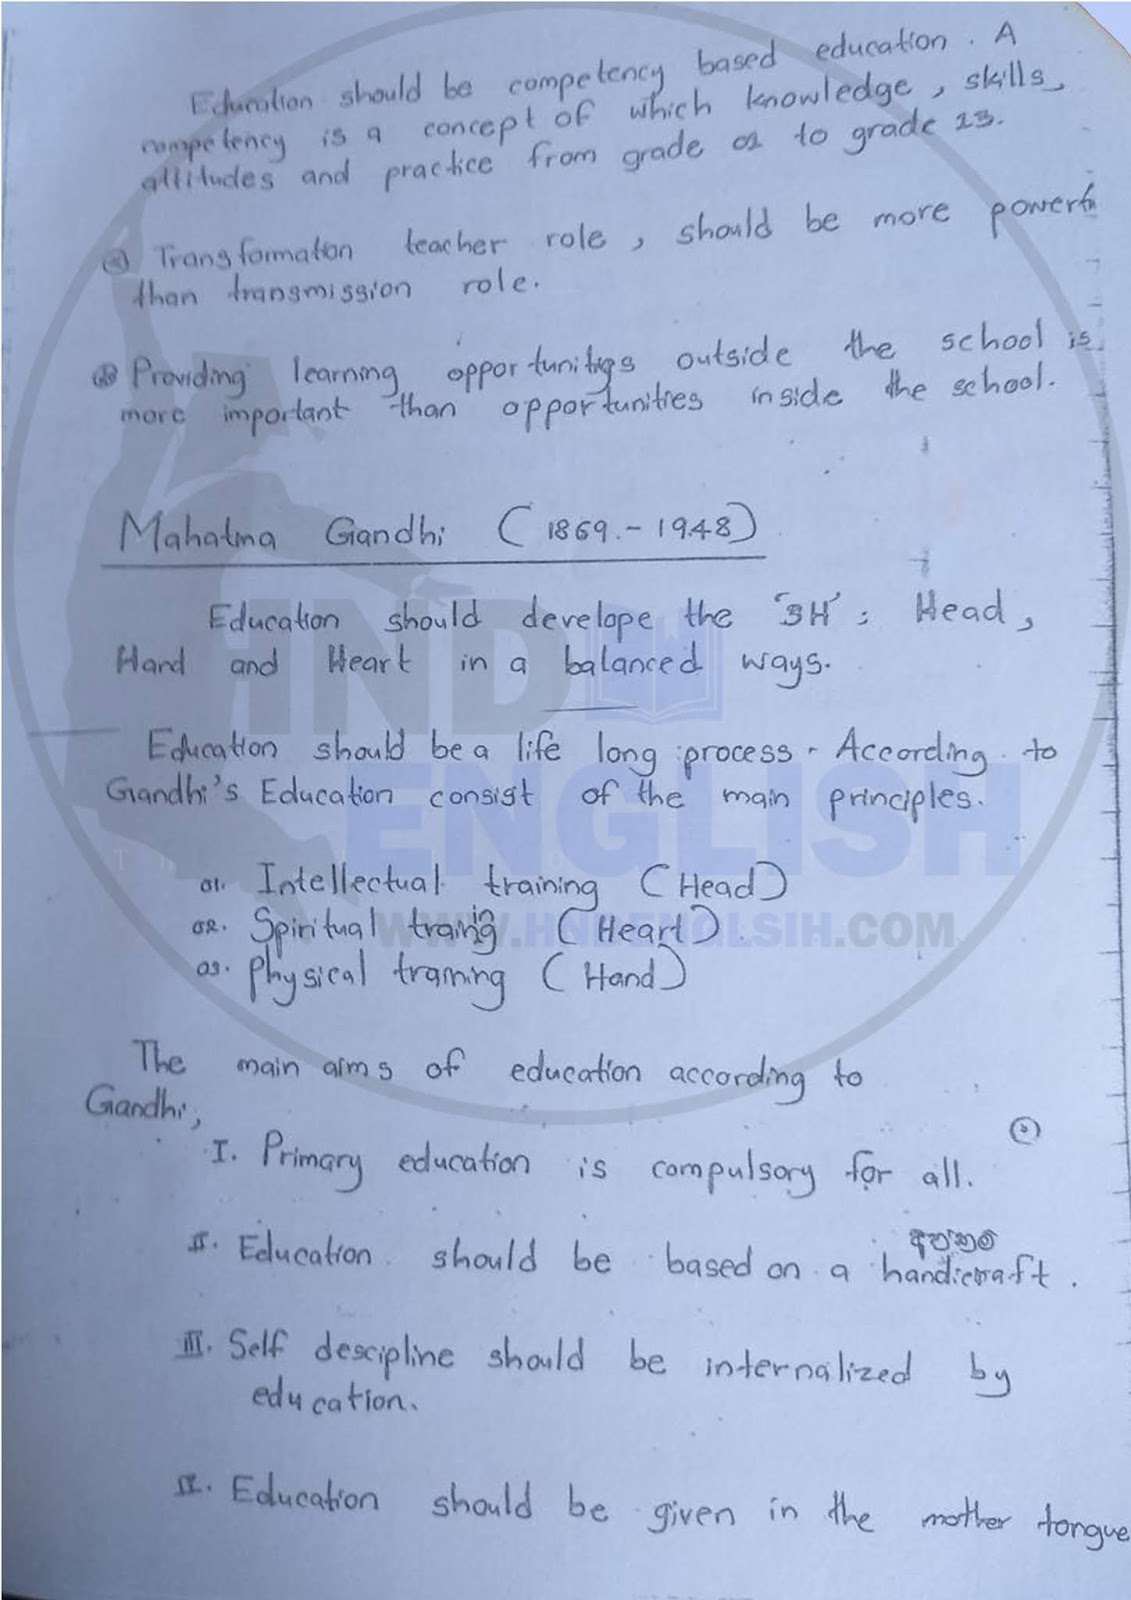 Education should be competency based education. A
competency is a concept of which knowledge, skills,
attitudes and practice from grade 01 to grade 13.
Transformation teacher role, should be more powerfu
than transmission role.
Providing learning opportunities outside the school is
more important than opportunities inside the school.
Mahatma Gandhi (1869.-1948)
Education should develope the '3H': Head,
Hand and Heart in a balanced ways.
Education should be a life long process. According to
Gandhi's Education consist of the main principles.
01. Intellectual training (Head)
02. Spiritual traing (Heart).
03. Physical training (Hand)
The main aims of education according to
Gandhi,
I. Primary education is compulsory for all.
II. Education should be based on a handicraft.
III. Self descipline should be internalized by
education.
IV. Education should be given in the mother tongue
HND
ENGLISH
WWW.HNDENGLSIH.COM